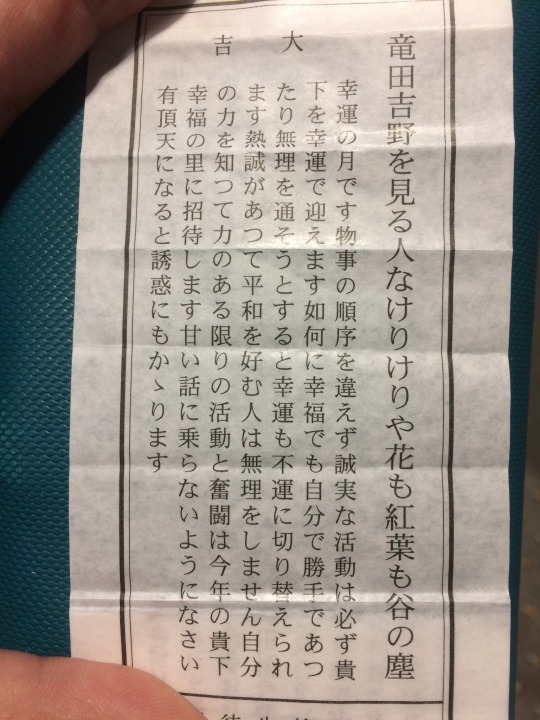 竜田吉野を見る人なけりけりや花も紅葉も谷の塵
大吉
幸運の月です物事の順序を違えず誠実な活動は必ず貴
下を幸運で迎えます如何に幸福でも自分で勝手であつ
たり無理を通そうとすると幸運も不運に切り替えられ
ます熱誠があつて平和を好む人は無理をしません自分
の力を知つて力のある限りの活動と奮闘は今年の貴下
幸福の里に招待します甘い話に乗らないようになさい
有頂天になると誘惑にもかゝります